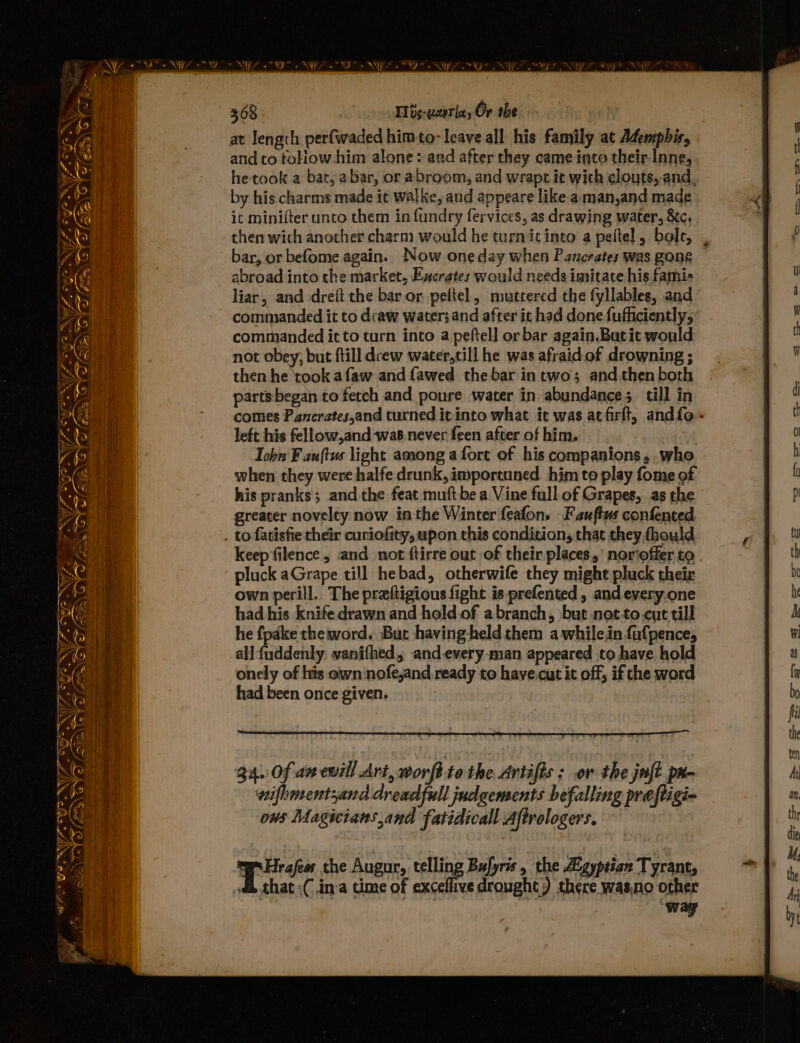 368 Πῦς-μαντία, Or the
at length perſwaded him to leave all his family at Memphis,
and to follow him alone: and after they came into their Inne,
he took a bat, a bar, or a broom, and wrapt it with clouts, and
by his charms made it walke, and appeare like a man, and made
it miniſter unto them in ſundry ſervices, as drawing water, &c.
then with another charm would he turn it into a peſtel, bolt,
bar, or beſome again. Now one day when Pancrates was gone
abroad into the market, Eucrates would needs imitate his fami-
liar, and dreſt the bar or peſtel, muttered the ſyllables, and
commanded it to draw water; and after it had done ſufficiently,
commanded it to turn into a peſtell or bar again. But it would
not obey, but ſtill drew water, till he was afraid of drowning;
then he took a ſaw and ſawed the bar in two; and then both
parts began to fetch and poure water in abundance; till in
comes Pancrates, and turned it into what it was at firſt, and ſo
left his fellow, and was never ſeen after of him.
Iohn Fauſtus light among a ſort of his companions, who
when they were halfe drunk, importuned him to play ſome of
his pranks; and the feat muſt be a Vine full of Grapes, as the
greater novelty now in the Winter ſeaſon. Fauſtus conſented
to ſatisfie their curioſity, upon this condition, that they ſhould
keep ſilence, and not ſtirre out of their places, nor offer to
pluck a Grape till he bad, otherwiſe they might pluck their
own perill. The præſtigious ſight is preſented, and every one
had his knife drawn and hold of a branch, but not to cut till
he ſpake the word. But having held them a while in ſuſpence,
all ſuddenly vaniſhed, and every man appeared to have hold
onely of his own noſe, and ready to have cut it off, if the word
had been once given.
34. Of an evill Art, worſt to the Artiſts: or the juſt pu-
niſhment, and dreadfull judgements befalling præſtigi-
ous Magicians, and fatidicall Aſtrologers.
THraſeas the Augur, telling Buſyris, the Ægyptian Tyrant,
that (in a time of exceſſive drought) there was no other
way